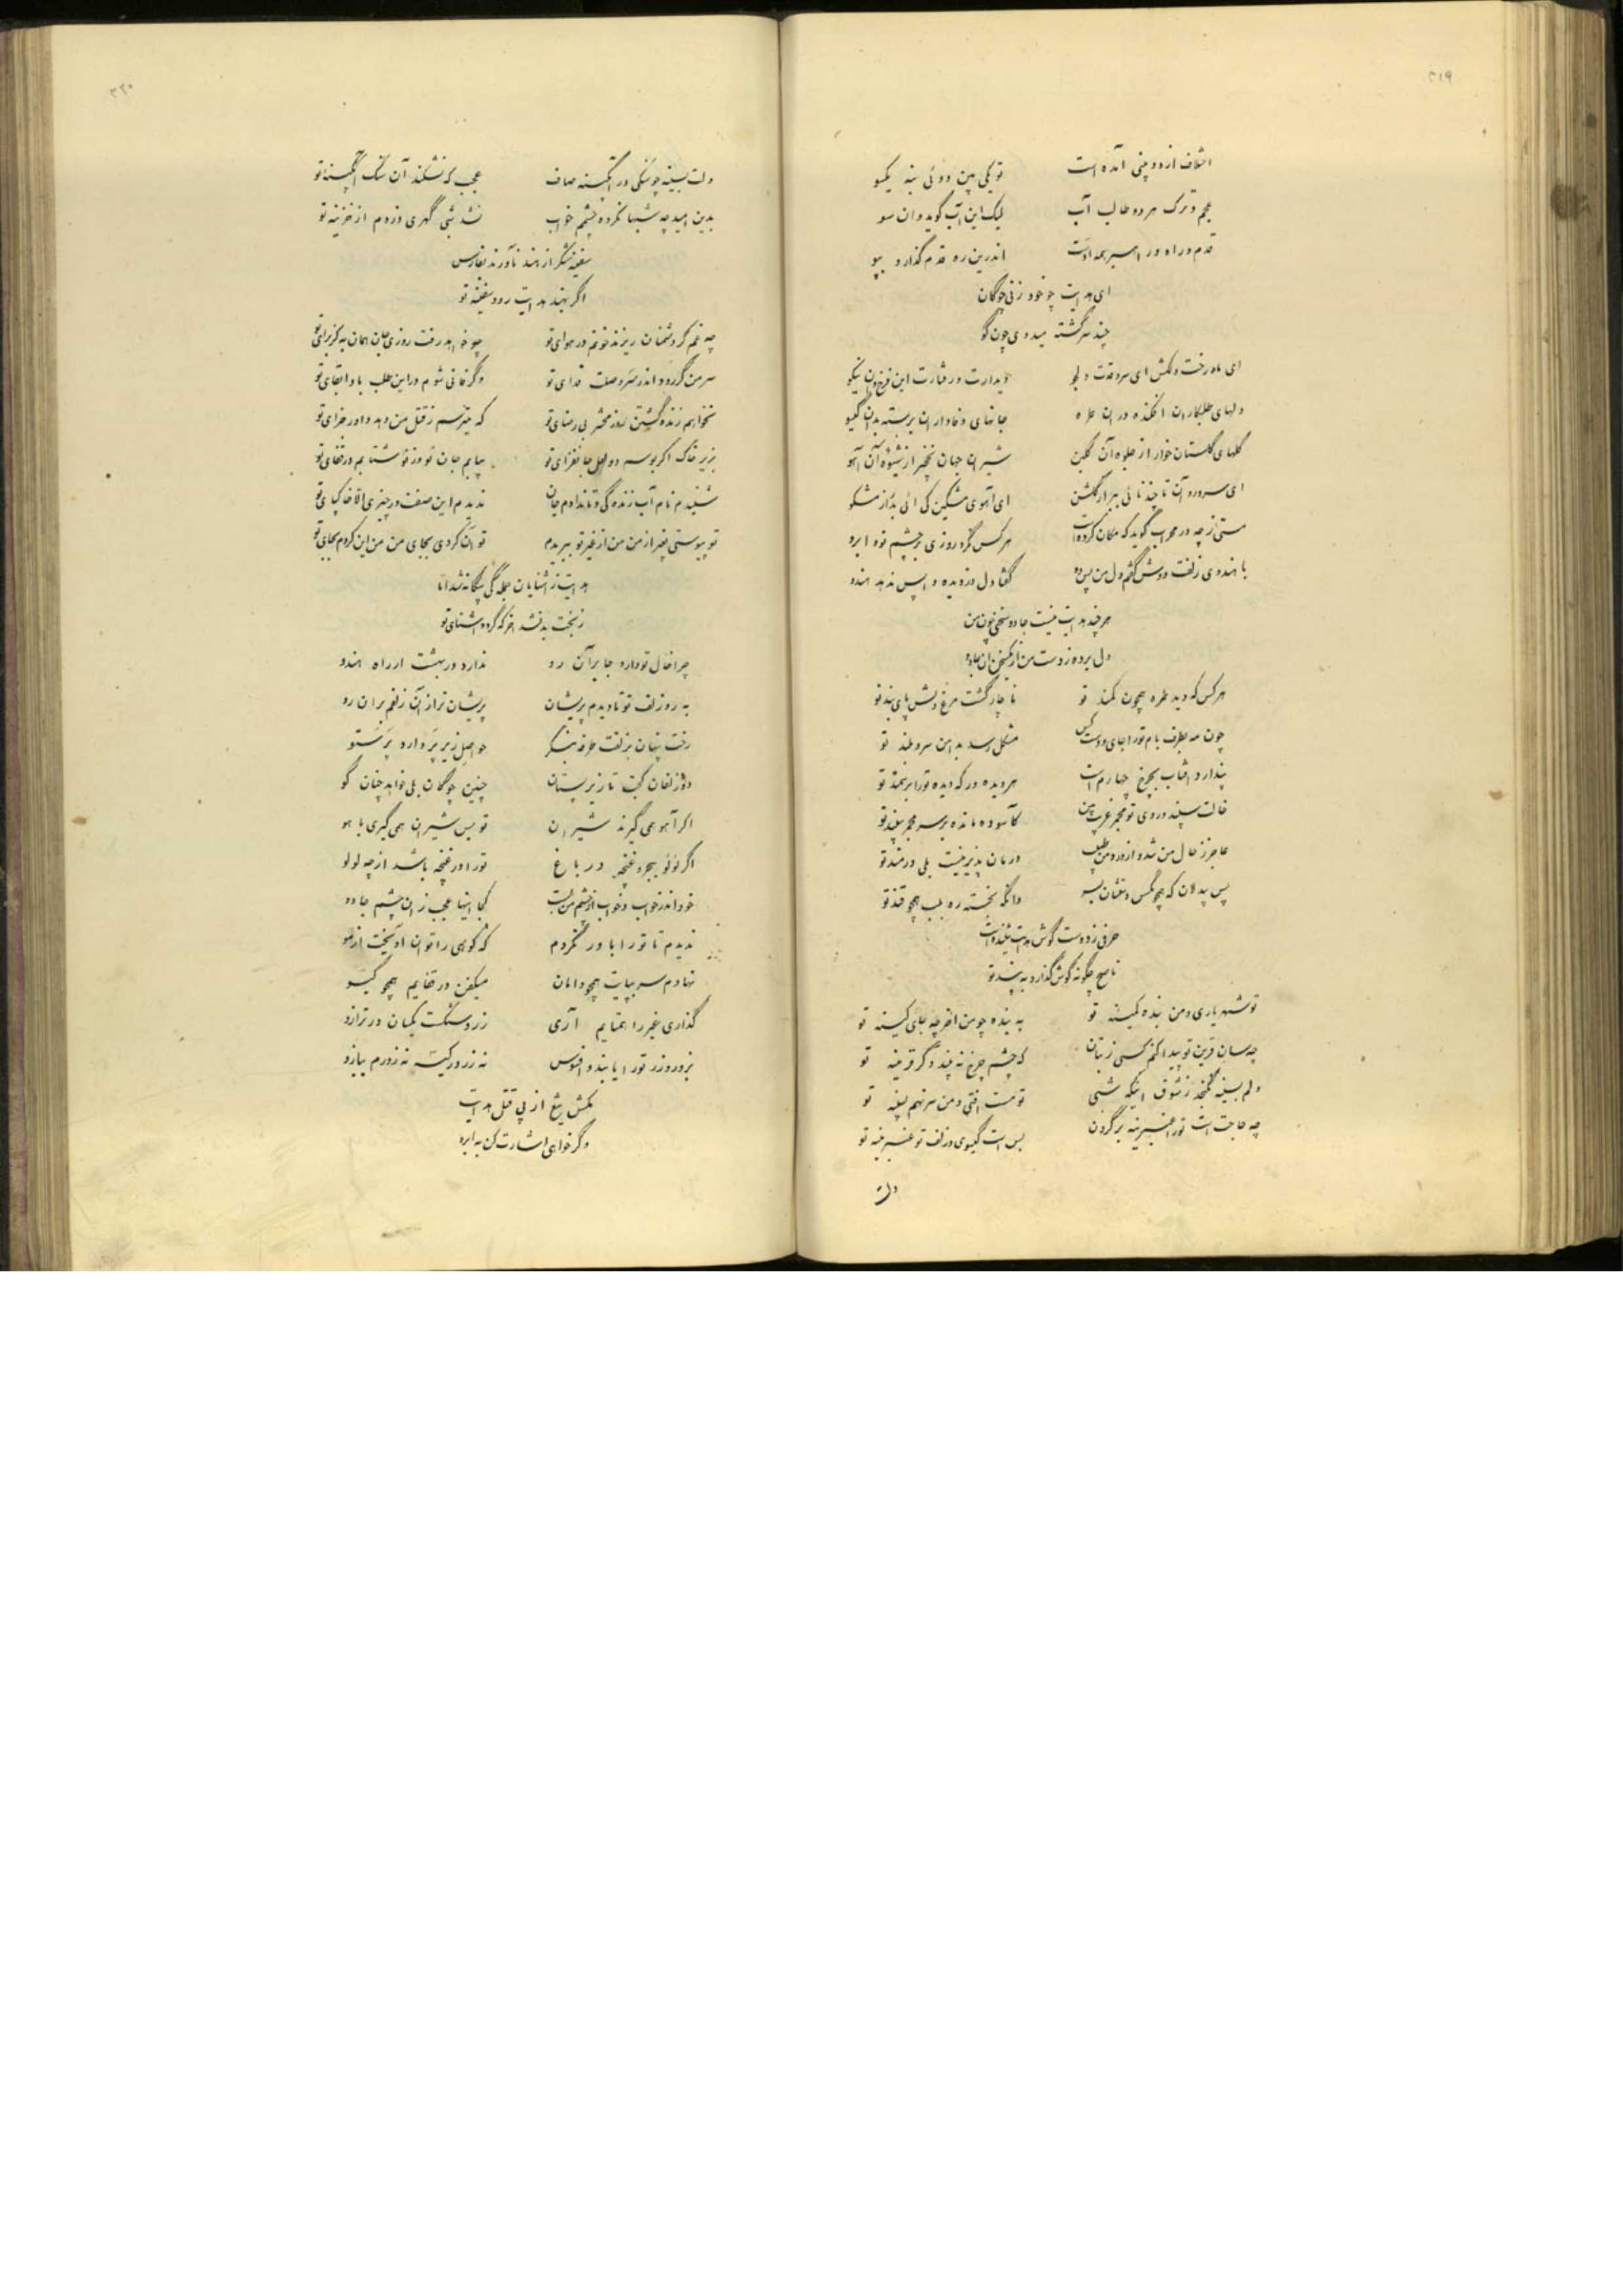 ۳۱۹
اختلاف از دو بینی آمده است تو یکی بین دوئی بنه یکسو
عجم و ترک هر دو طالب آب لیک این آب گوید و آن سو
قدم و راه و راهبر همه اوست اندرین ره قدم گذار و بپو
ای هدایت چو خود زنی چوگان
چند سرگشته میدوی چون گو
ای ماه رخت دلکش ای سرو قدت دلجو دیدارت و رفتارت این فرخ و آن نیکو
دلهای طلبکاران افکنده در آن طره جانهای وفاداران بر بسته بدان گیسو
گلهای گلستان خوار از جلوه آن گلبن شیران جهان نخجیر از شیوه آن آهو
ای سرو روان تا چند نائی ببر از گلشن ای آهوی مشکین کی آئی بدر از مشکو
مستی ز چه در محراب گوید که مکان کرده است هر کس نگرد روزی بر چشم تو و ابرو
با هندوی زلفت دوش گفتم دل من پس ده گفتا دل دزدیده واپس ندهد هندو
هر چند هدایت نیست جادو سخنی چون من
دل برده ز دست من از یک سخن آن جادو
هر کس که دید طره همچون کمند تو ناچار گشت مرغ دلش پای بند تو
چون مه بطرف بام تو را جای و دست کس مشکل رسد بدامن سرو بلند تو
پندارد آفتاب بچرخ چهارم است هر دیده ور که دیده تو را بر سمند تو
خالت سپند و روی تو مجمر غریب بین کآسوده مانده بر سر مجمر سپند تو
عاجز ز حال من شده از درد من طبیب درمان پذیر نیست بلی دردمند تو
پس بیدلان که همچو مگس دستشان بسر وانگه نجسته ره بلب همچو قند تو
حرفی ز دوست گوش هدایت شنیده است
ناصح چگونه گوش گذارد به پند تو
تو شهریاری و من بنده کمینه تو به بنده چو من آخر چه جای کینه تو
چه سان قرین تو پیدا کنم کسی ز بتان که چشم چرخ نه بیند دگر قرینه تو
دلم بسینه نگنجد ز شوق اینکه شبی تو مست افتی و من سر نهم بسینه تو
چه حاجت است تو را عنبرینه بر گردن بس است گیسوی و زلف تو عنبرینه تو
دلت
۳۲۰
دلت بسینه چو سنگی در آبگینه صاف عجب که نشکند آن سنگ آبگینه تو
بدین امید چه شبها نکرده چشمم خواب نشد شبی گهری دزدم از خزینه تو
سفینه شکر از هند ناورند بفارس
اگر بهند هدایت رود سفینه تو
چه غم گر دشمنان ریزند خونم در هوای تو چو خواهد رفت روزی جان همان به کز برای تو
سر من گر رود اندر سر وصلت فدای تو وگر فانی شوم در این طلب بادا بقای تو
نخواهم زنده گشتن روز محشر بی رضای تو که میترسم ز قتل من دهد داور جزای تو
بزیر خاک اگر بوسم دو لعل جانفزای تو بیابم جان نو وز نو شتابم در قفای تو
شنیدم نام آب زندگی و تا ندادم جان ندیدم این صفت در چیزی الا خاکپای تو
تو پیوستی بغیر از من من از غیر تو ببریدم تو آن کردی بجای من من این کردم بجای تو
هدایت ز آشنایان جملگی بیگانه شد اما
ز بخت بد نشد آخر که گردد آشنای تو
چرا خال تو دارد جا بر آن رو ندارد در بهشت ار راه هندو
به رو زلف تو تا دیدم پریشان پریشان تر از آن زلفم بر آن رو
رخت پنهان بزلفت طرفه بنگر حواصل زیر پر دارد پرستو
دو زلفان کجت تا زیر پستان چنین چوگان بلی خواهد چنان گو
اگر آهو همی گیرند شیران تو بس شیران همی گیری باهو
اگر لؤلؤ ببحر و غنچه در باغ تو را در غنچه باشد از چه لولو
خود اندر خواب و خواب از چشم من بست کجا اینها عجب ز آن چشم جادو
ندیدم تا تو را باور نکردم که کوهی را توان آویخت از مو
نهادم سر بپایت همچو دامان میفکن در قفایم همچو گیسو
گذاری غیر را همتایم آری زر و سنگست یکسان در ترازو
بزور و زر تو را یابند و افسوس نه زر در کیسه نه زورم ببازو
مکش تیغ از پی قتل هدایت
وگر خواهی اشارت کن به ابرو